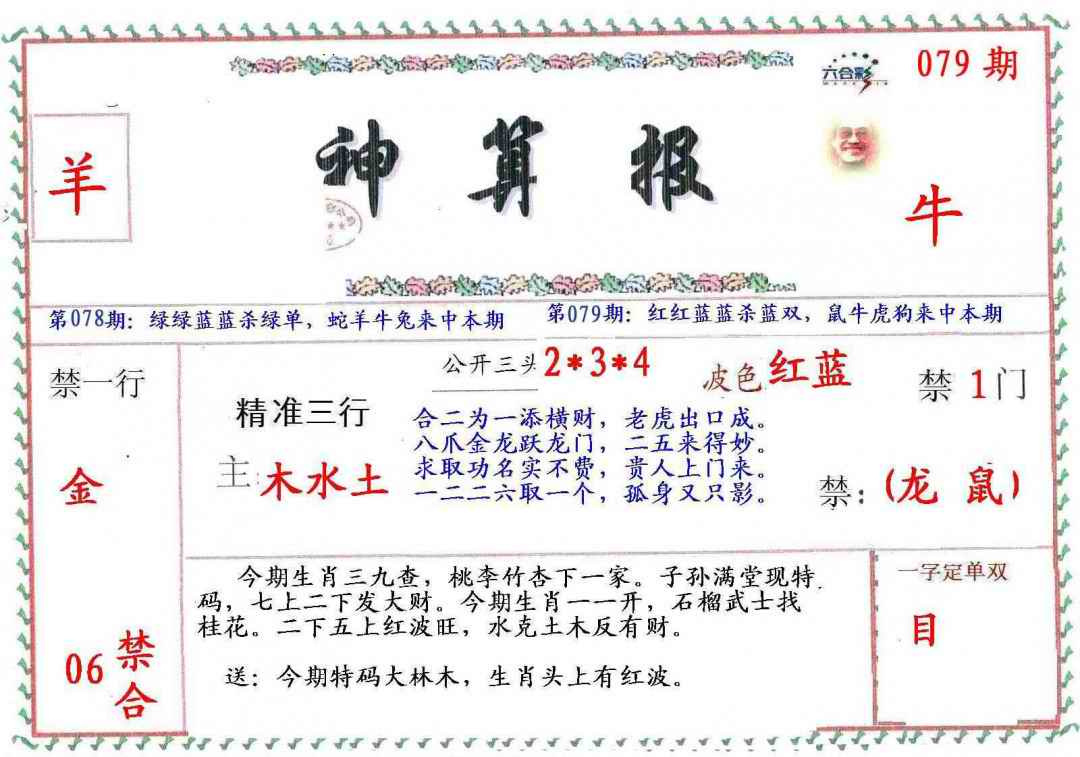 六合彩
079 期
羊
神算报
牛
第078期：绿绿蓝蓝杀绿单，蛇羊牛兔来中本期
第079期：红红蓝蓝杀蓝双，鼠牛虎狗来中本期
禁一行
金
06
禁
合
公开三头2*3*4
波色红蓝
禁1门
精准三行
主:木水土
合二为一添横财，老虎出口成。
八爪金龙跃龙门，二五来得妙。
求取功名实不费，贵人上门来。
一二二六取一个，孤身又只影。
禁:(龙 鼠)
今期生肖三九查，桃李竹杏下一家。子孙满堂现特
码，七上二下发大财。今期生肖一一开，石榴武士找
桂花。二下五上红波旺，水克土木反有财。
送：今期特码大林木，生肖头上有红波。
一字定单双
目